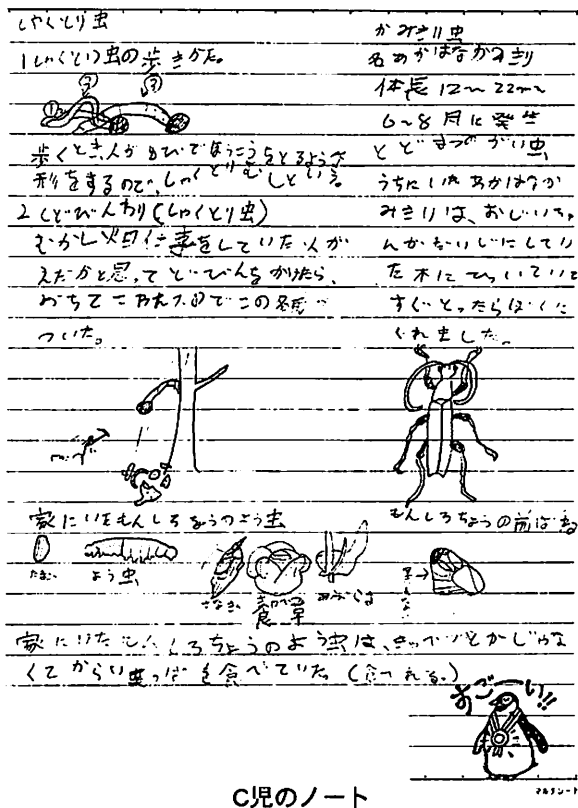 しゃくとり虫
1しゃくとり虫の歩きかた。
① ② ③
歩くとき、人がゆびでほうこうをとるような
形をするので、しゃくとりむしという。
2 (どびんわり(しゃくとり虫)
むかし火田仕事をしていた人が
えだかと思ってどびんをかけたら、
おちてこわれたのでこの名が
ついた。
家にいたもんしろちょうのよう虫
たまご
よう虫
さなぎ
あぶらな
家にいたもんしろちょうのよう虫は、キャベツとかじゃな
くてからい葉っぱを食べていた。(食べれる。)
かみきり虫
名あかはなかみきり
体長12〜22mm
6〜8月に発生
とどまつのがい虫
うちにいたあかはなか
みきりは、おじいちゃ
んがだいじにしてい
た木についていて
すぐとったらぼくに
くれました。
もんしろちょうの前ばね
すご〜い!!
マルチシート
C児のノート